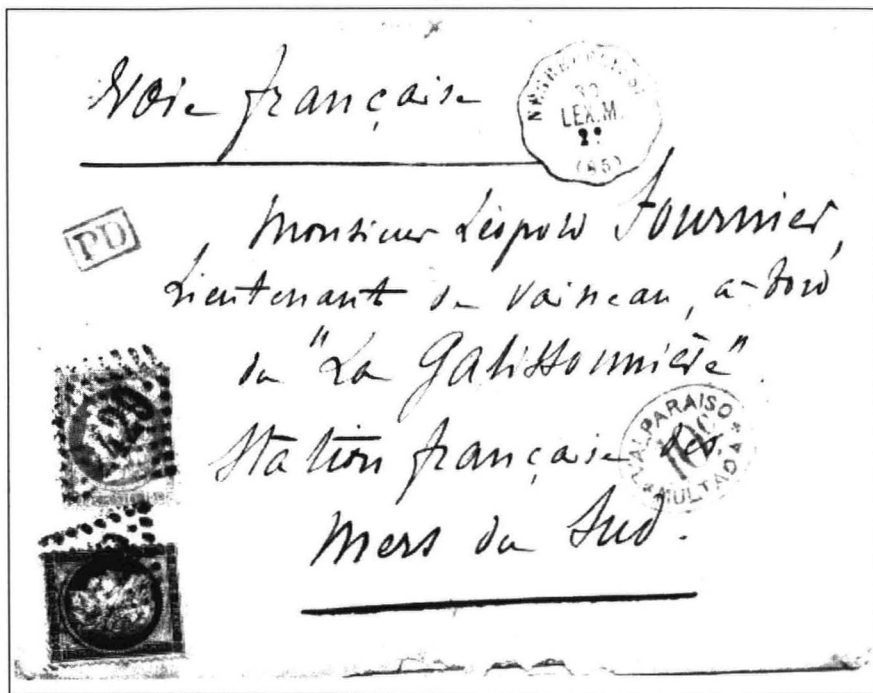 Voie française
30
LEX.M.
(85)
PD
Monsieur Léopold Fournier,
Lieutenant de vaisseau, à bord
du "La Galissonnière"
Station française des
Mers du Sud.
VALPARAISO
10C
MULTADA